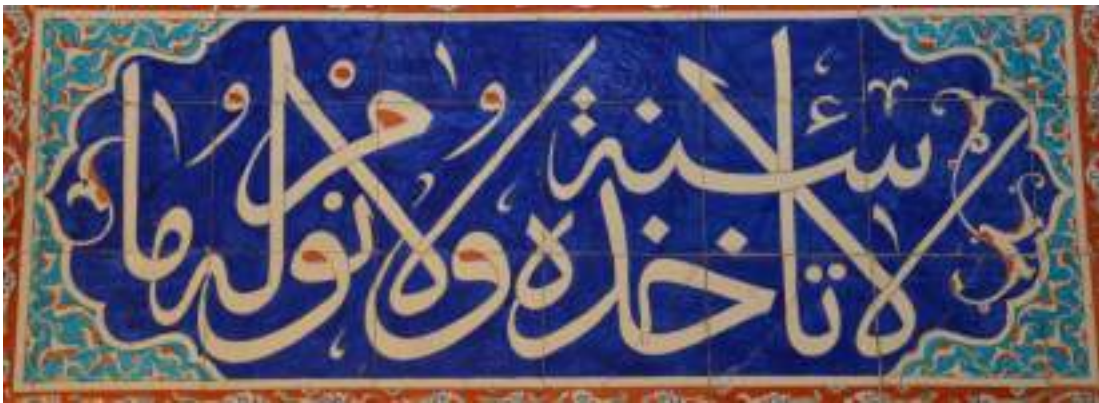 لا تأخذه سنة ولا نوم له ما